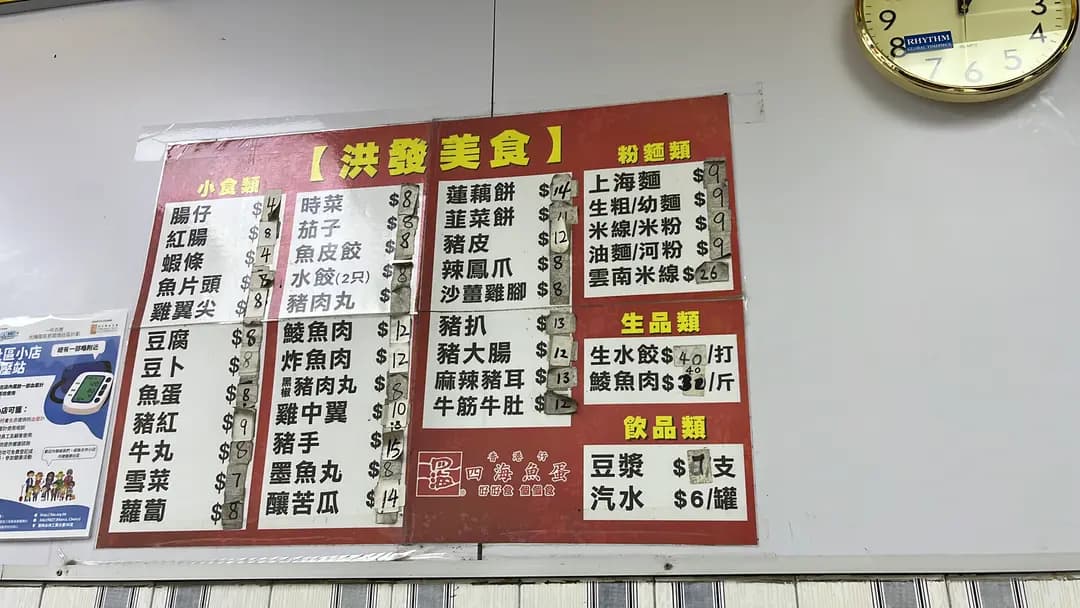 【洪發美食】
小食類
腸仔 $4
紅腸 $8
蝦條 $4
魚片頭 $8
雞翼尖 $8
豆腐 $8
豆卜 $8
魚蛋 $8
豬紅 $9
牛丸 $8
雪菜 $7
蘿蔔 $8
時菜 $8
茄子 $8
魚皮餃 $8
水餃(2只) $8
豬肉丸 $
鯪魚肉 $12
炸魚肉 $12
黑椒豬肉丸 $8
雞中翼 $10
豬手 $15
墨魚丸 $8
釀苦瓜 $14
蓮藕餅 $14
韮菜餅 $11
豬皮 $12
辣鳳爪 $8
沙薑雞腳 $8
豬扒 $13
豬大腸 $12
麻辣豬耳 $13
牛筋牛肚 $12
香港仔
四海魚蛋
好好食 個個食
粉麵類
上海麵 $9
生粗/幼麵 $9
米線/米粉 $9
油麵/河粉 $9
雲南米線 $26
生品類
生水餃 $40/打
鯪魚肉 $40/斤
飲品類
豆漿 $7支
汽水 $6/罐
RHYTHM
9 8 7 6 5 4 3
社區小店
壓站